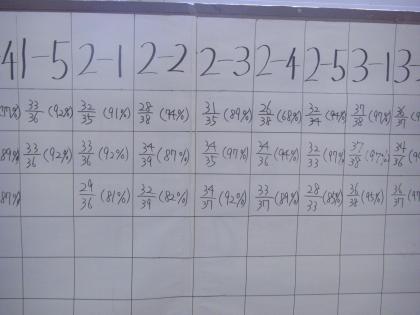 41-5 2-1 2-2 2-3 2-4 2-5 3-1 3-
33/36 (92%) 32/35 (91%) 28/38 (74%) 31/35 (89%) 26/38 (68%) 32/34 (94%) 37/38 (97%) 36/37
89% 33/36 (92%) 33/36 (92%) 34/39 (87%) 34/35 (97%) 34/36 (94%) 32/33 (97%) 37/38 (97%) 34/36
87% 29/36 (81%) 32/39 (82%) 34/37 (92%) 33/37 (89%) 28/33 (85%) 36/38 (95%) 36/37 (97